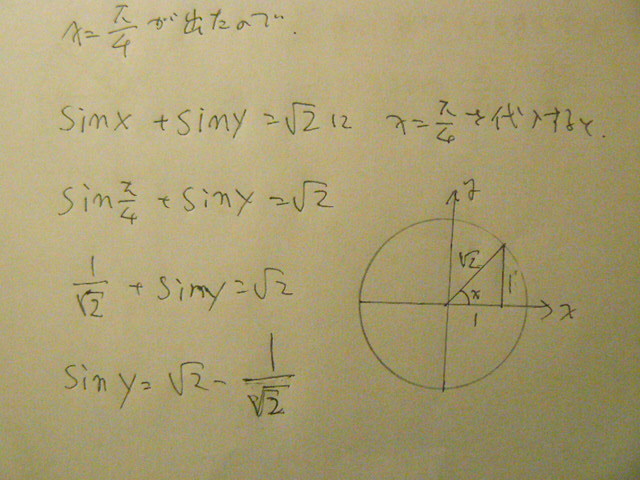 x=π/4 が出たので.
sinx + siny = √2 に x=π/4 を代入すると.
sin π/4 + siny = √2
1/√2 + siny = √2
siny = √2 - 1/√2
y
√2
x
1
1
x